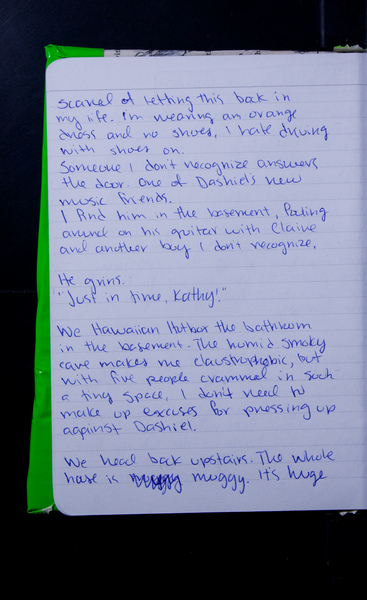 scared of letting this back in
my life. I'm wearing an orange
dress and no shoes, I hate driving
with shoes on.
Someone I don't recognize answers
the door. One of Dashiel's new
music friends.
I find him in the basement, fooling
around on his guitar with Claire
and another boy I don't recognize.
He grins.
"Just in time, Kathy!"
We Hawaiian Hotbox the bathroom
in the basement. The humid smoky
cave makes me claustrophobic, but
with five people crammed in such
a tiny space, I don't need to
make up excuses for pressing up
against Dashiel.
We head back upstairs. The whole
house is muggy. It's huge